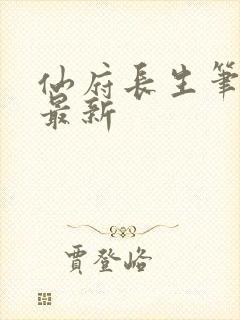 仙府長生筆
最新
賈登峪